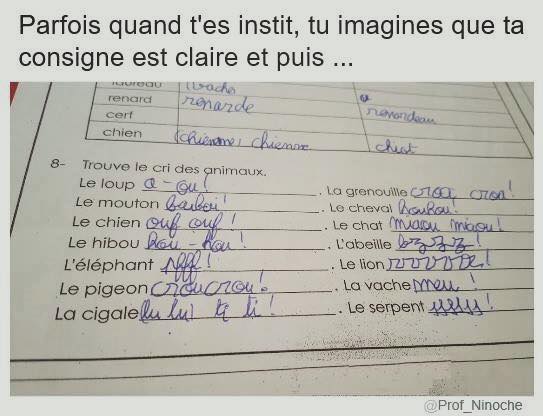 Parfois quand t'es instit, tu imagines que ta
consigne est claire et puis ...
taureau vache
renard renarde renardeau
cerf
chien (chienne) chienne chiot
8- Trouve le cri des animaux.
Le loup a-ou! . La grenouille croa, croa!
Le mouton . Le cheval
Le chien ouf ouf! . Le chat miaou miaou!
Le hibou hou-hou! . L'abeille bzzzz!
L'éléphant pfff! . Le lion
Le pigeon croucrou! . La vache meu!
La cigale . Le serpent
@Prof_Ninoche